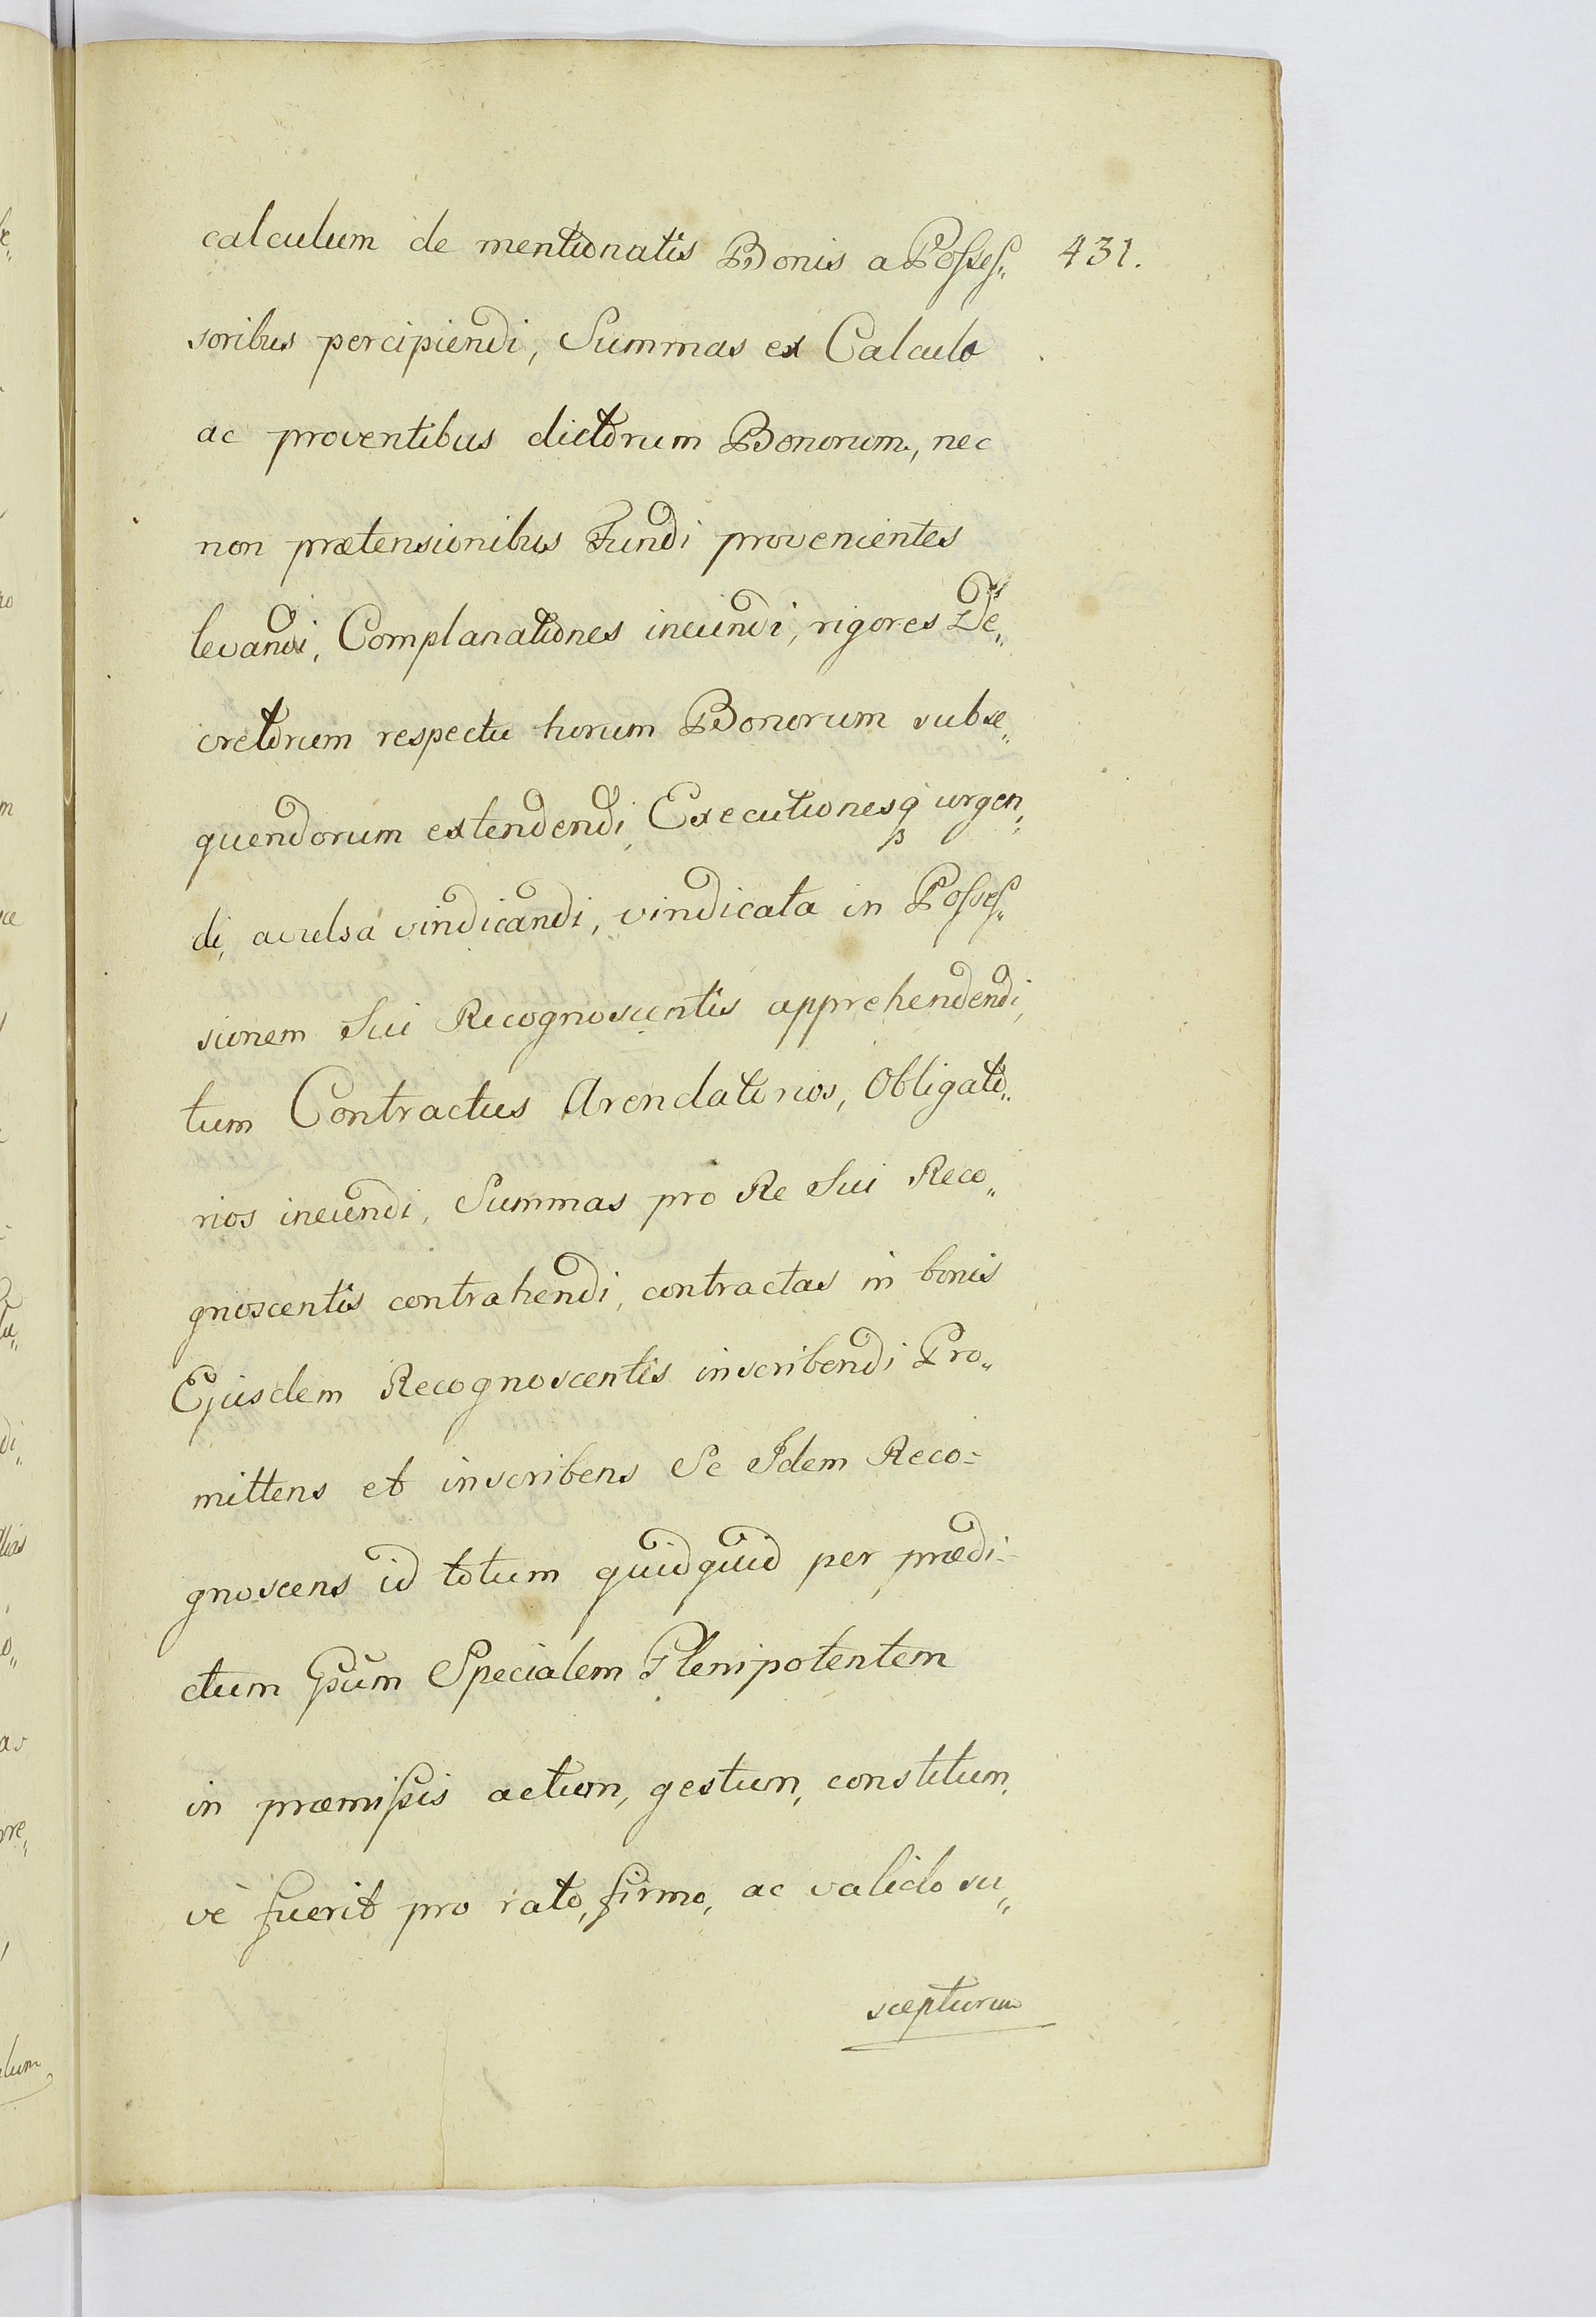 calculum de mentionatis Bonis a Posses„ 431.
soribus percipiendi, Summas ex Calculo
ac proventibus dictorum Bonorum, nec
non prætensionibus Fundi provenientes
levandi, Complanationes ineundi, rigores De„
cretorum respectu horum Bonorum subse„
quendorum extendendi, Executionesq urgen„
di, avulsa vindicandi, vindicata in Posses„
sionem Sui Recognoscentis apprehendendi,
tum Contractus Arendatorios, Obligato„
rios ineundi, Summas pro Re Sui Reco„
gnoscentis contrahendi, contractas in bonis
Ejusdem Recognoscentis inscribendi Pro„
mittens et inscribens Se Idem Reco=
gnoscens id totum quidquid per prædi=
ctum Ipsum Specialem Plenipotentem
in præmissis actum, gestum, constitum,
vè fuerit pro rato, firmo, ac valido su„
scepturum